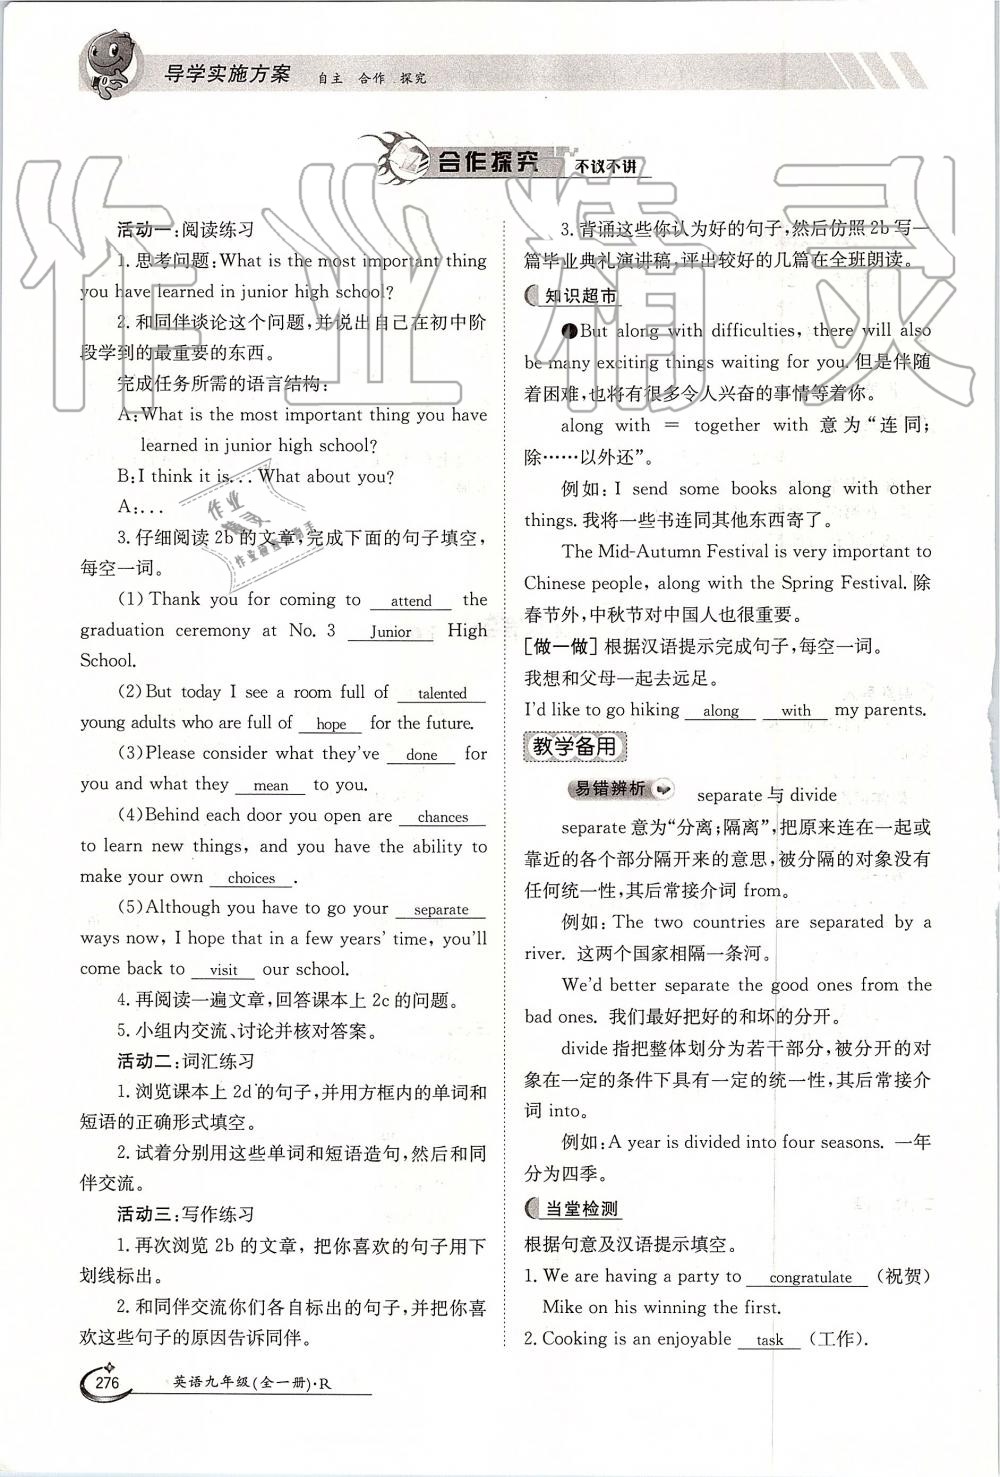 导学实施方案 自主 合作 探究
合作探究 不议不讲
活动一:阅读练习
1.思考问题:What is the most important thing
you have learned in junior high school?
2.和同伴谈论这个问题,并说出自己在初中阶
段学到的最重要的东西。
完成任务所需的语言结构:
A:What is the most important thing you have
learned in junior high school?
B:I think it is... What about you?
A:...
3.仔细阅读 2b 的文章,完成下面的句子填空,
每空一词。
(1)Thank you for coming to attend the
graduation ceremony at No. 3 Junior High
School.
(2)But today I see a room full of talented
young adults who are full of hope for the future.
(3)Please consider what they've done for
you and what they mean to you.
(4)Behind each door you open are chances
to learn new things, and you have the ability to
make your own choices .
(5)Although you have to go your separate
ways now, I hope that in a few years' time, you'll
come back to visit our school.
4.再阅读一遍文章,回答课本上 2c 的问题。
5.小组内交流、讨论并核对答案。
活动二:词汇练习
1.浏览课本上 2d 的句子,并用方框内的单词和
短语的正确形式填空。
2.试着分别用这些单词和短语造句,然后和同
伴交流。
活动三:写作练习
1.再次浏览 2b 的文章,把你喜欢的句子用下
划线标出。
2.和同伴交流你们各自标出的句子,并把你喜
欢这些句子的原因告诉同伴。
3.背诵这些你认为好的句子,然后仿照 2b 写一
篇毕业典礼演讲稿,评出较好的几篇在全班朗读。
知识超市
❶But along with difficulties, there will also
be many exciting things waiting for you. 但是伴随
着困难,也将有很多令人兴奋的事情等着你。
along with = together with 意为“连同;
除……以外还”。
例如:I send some books along with other
things. 我将一些书连同其他东西寄了。
The Mid-Autumn Festival is very important to
Chinese people, along with the Spring Festival. 除
春节外,中秋节对中国人也很重要。
[做一做]根据汉语提示完成句子,每空一词。
我想和父母一起去远足。
I'd like to go hiking along with my parents.
教学备用
易错辨析 separate 与 divide
separate 意为“分离;隔离”,把原来连在一起或
靠近的各个部分隔开来的意思,被分隔的对象没有
任何统一性,其后常接介词 from。
例如:The two countries are separated by a
river. 这两个国家相隔一条河。
We'd better separate the good ones from the
bad ones. 我们最好把好的和坏的分开。
divide 指把整体划分为若干部分,被分开的对
象在一定的条件下具有一定的统一性,其后常接介
词 into。
例如:A year is divided into four seasons. 一年
分为四季。
当堂检测
根据句意及汉语提示填空。
1. We are having a party to congratulate (祝贺)
Mike on his winning the first.
2. Cooking is an enjoyable task (工作).
276 英语九年级(全一册)·R
作业精灵
作业精灵
作业检查小助手